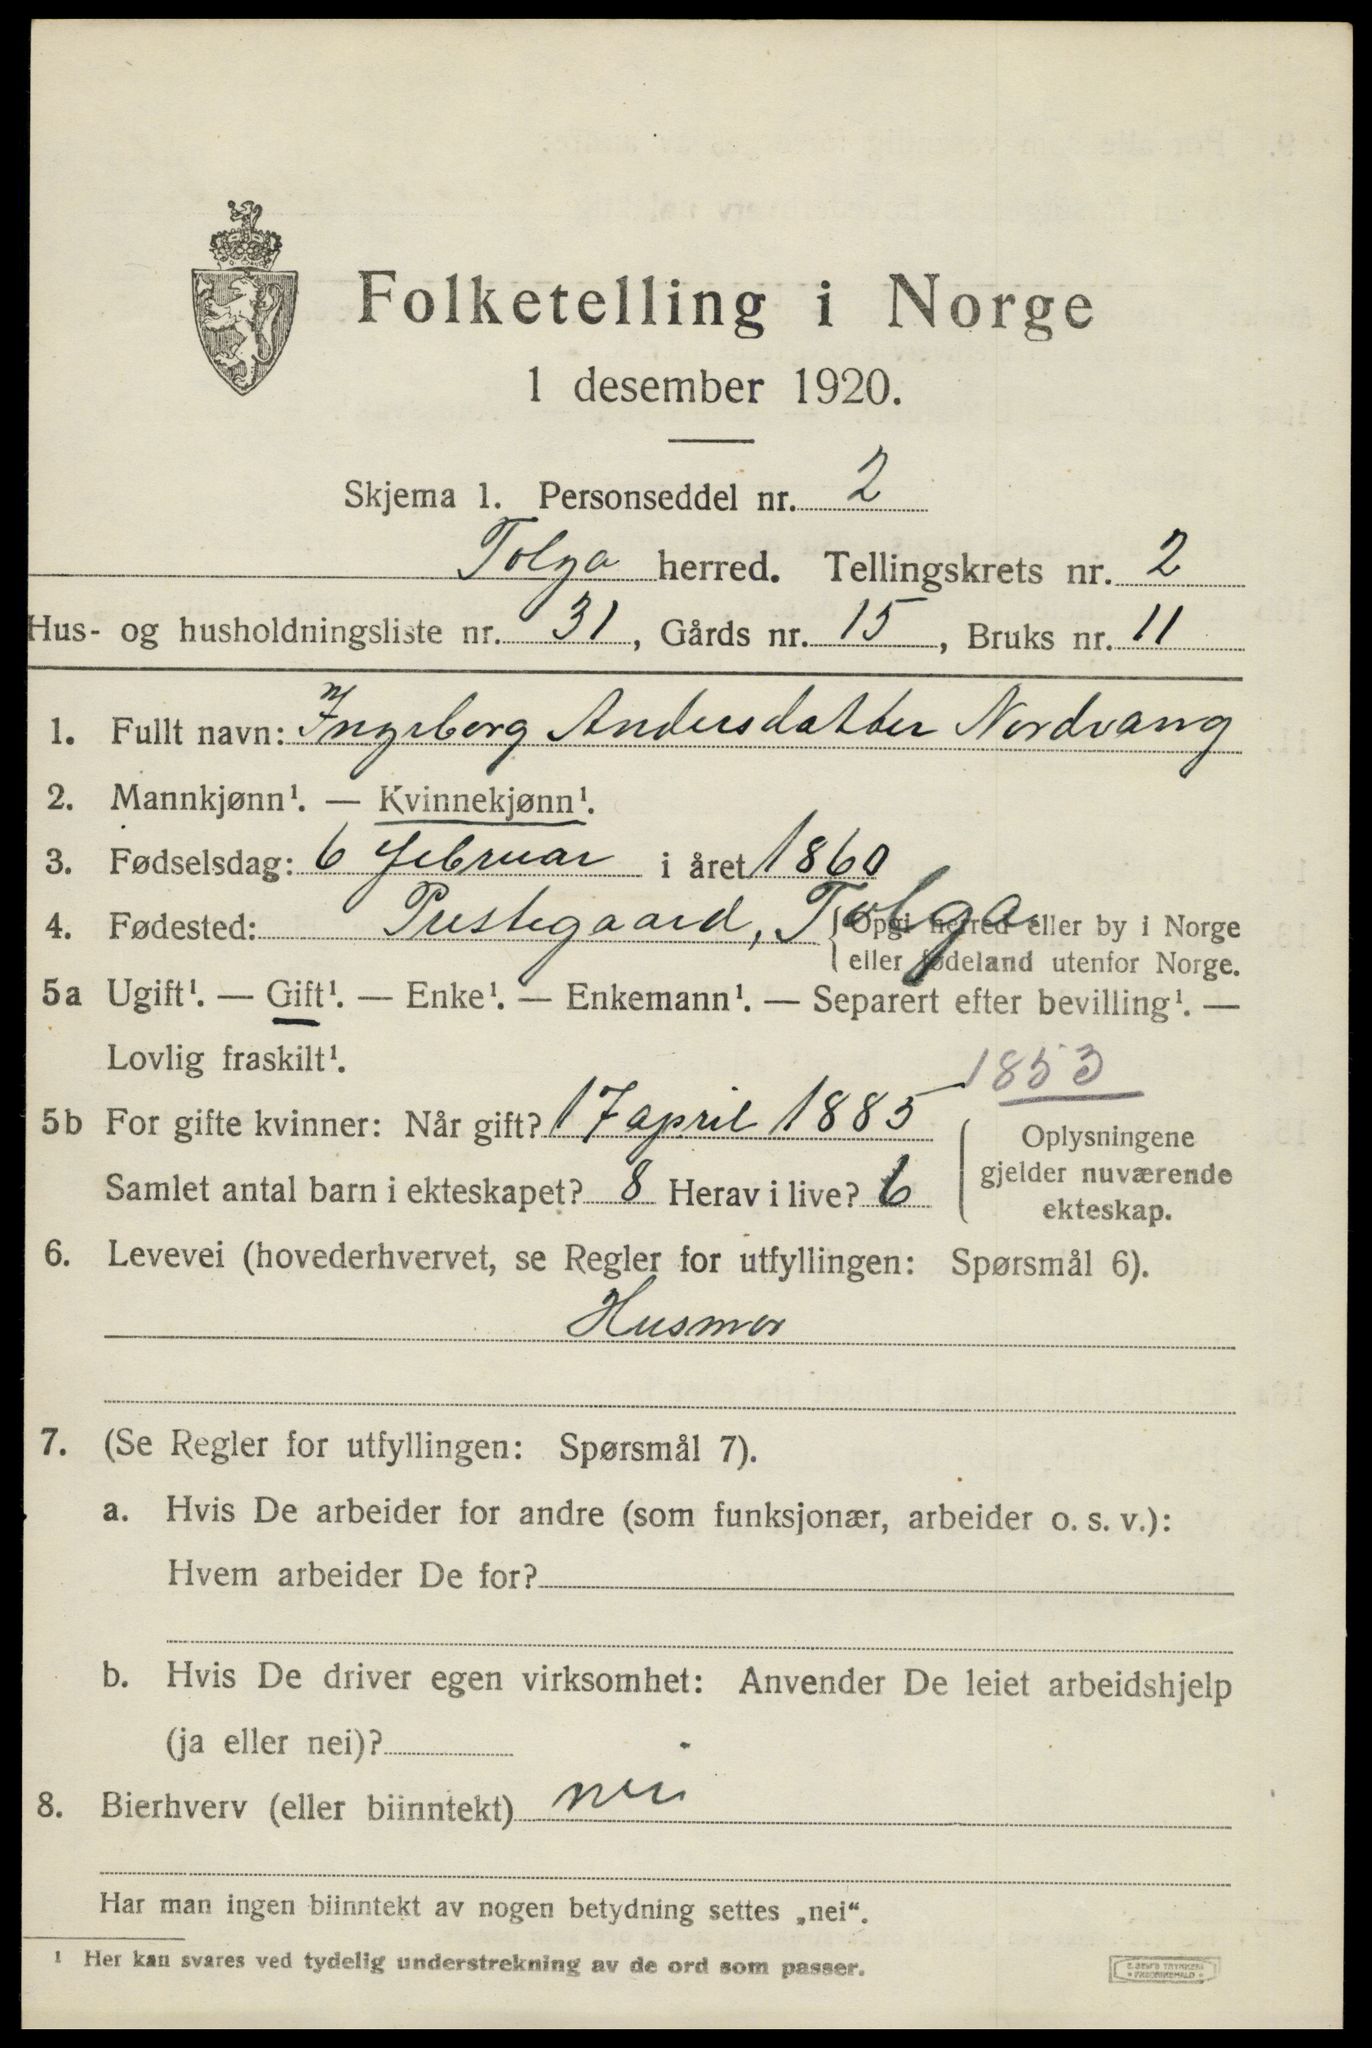 Folketelling i Norge
1 desember 1920.
Skjema 1. Personseddel nr. 2
Tolga herred. Tellingskrets nr. 2
Hus- og husholdningsliste nr. 31, Gårds nr. 15, Bruks nr. 11
1. Fullt navn: Ingeborg Andersdatter Nordvang
2. Mannkjønn¹. — Kvinnekjønn¹.
3. Fødselsdag: 6 februar i året 1860
4. Fødested: Prestegaard, Tolga
{Opgi herred eller by i Norge
eller fødeland utenfor Norge.
5a Ugift¹. — Gift¹. — Enke¹. — Enkemann¹. — Separert efter bevilling¹. —
Lovlig fraskilt¹.
1853
5b For gifte kvinner: Når gift? 17 april 1885
Samlet antal barn i ekteskapet? 8 Herav i live? 6
{Oplysningene
gjelder nuværende
ekteskap.
6. Levevei (hovederhvervet, se Regler for utfyllingen: Spørsmål 6).
Husmor
7. (Se Regler for utfyllingen: Spørsmål 7).
a. Hvis De arbeider for andre (som funksjonær, arbeider o. s. v.):
Hvem arbeider De for?
b. Hvis De driver egen virksomhet: Anvender De leiet arbeidshjelp
(ja eller nei)?
8. Bierhverv (eller biinntekt) nei
Har man ingen biinntekt av nogen betydning settes „nei“.
¹ Her kan svares ved tydelig understrekning av de ord som passer.